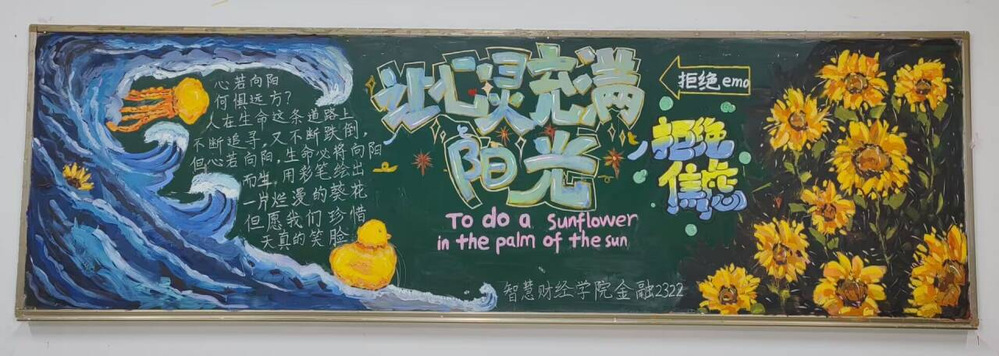 心若向阳
何惧远方？
人在生命这条道路上
不断追寻，又不断跌倒，
但心若向阳，生命必将向阳
而生，用彩笔绘出
一片烂漫的葵花
但愿我们珍惜
天真的笑脸
让心灵充满
阳光
To do a sunflower
in the palm of the sun
拒绝emo
拒绝
焦虑
智慧财经学院金融2322